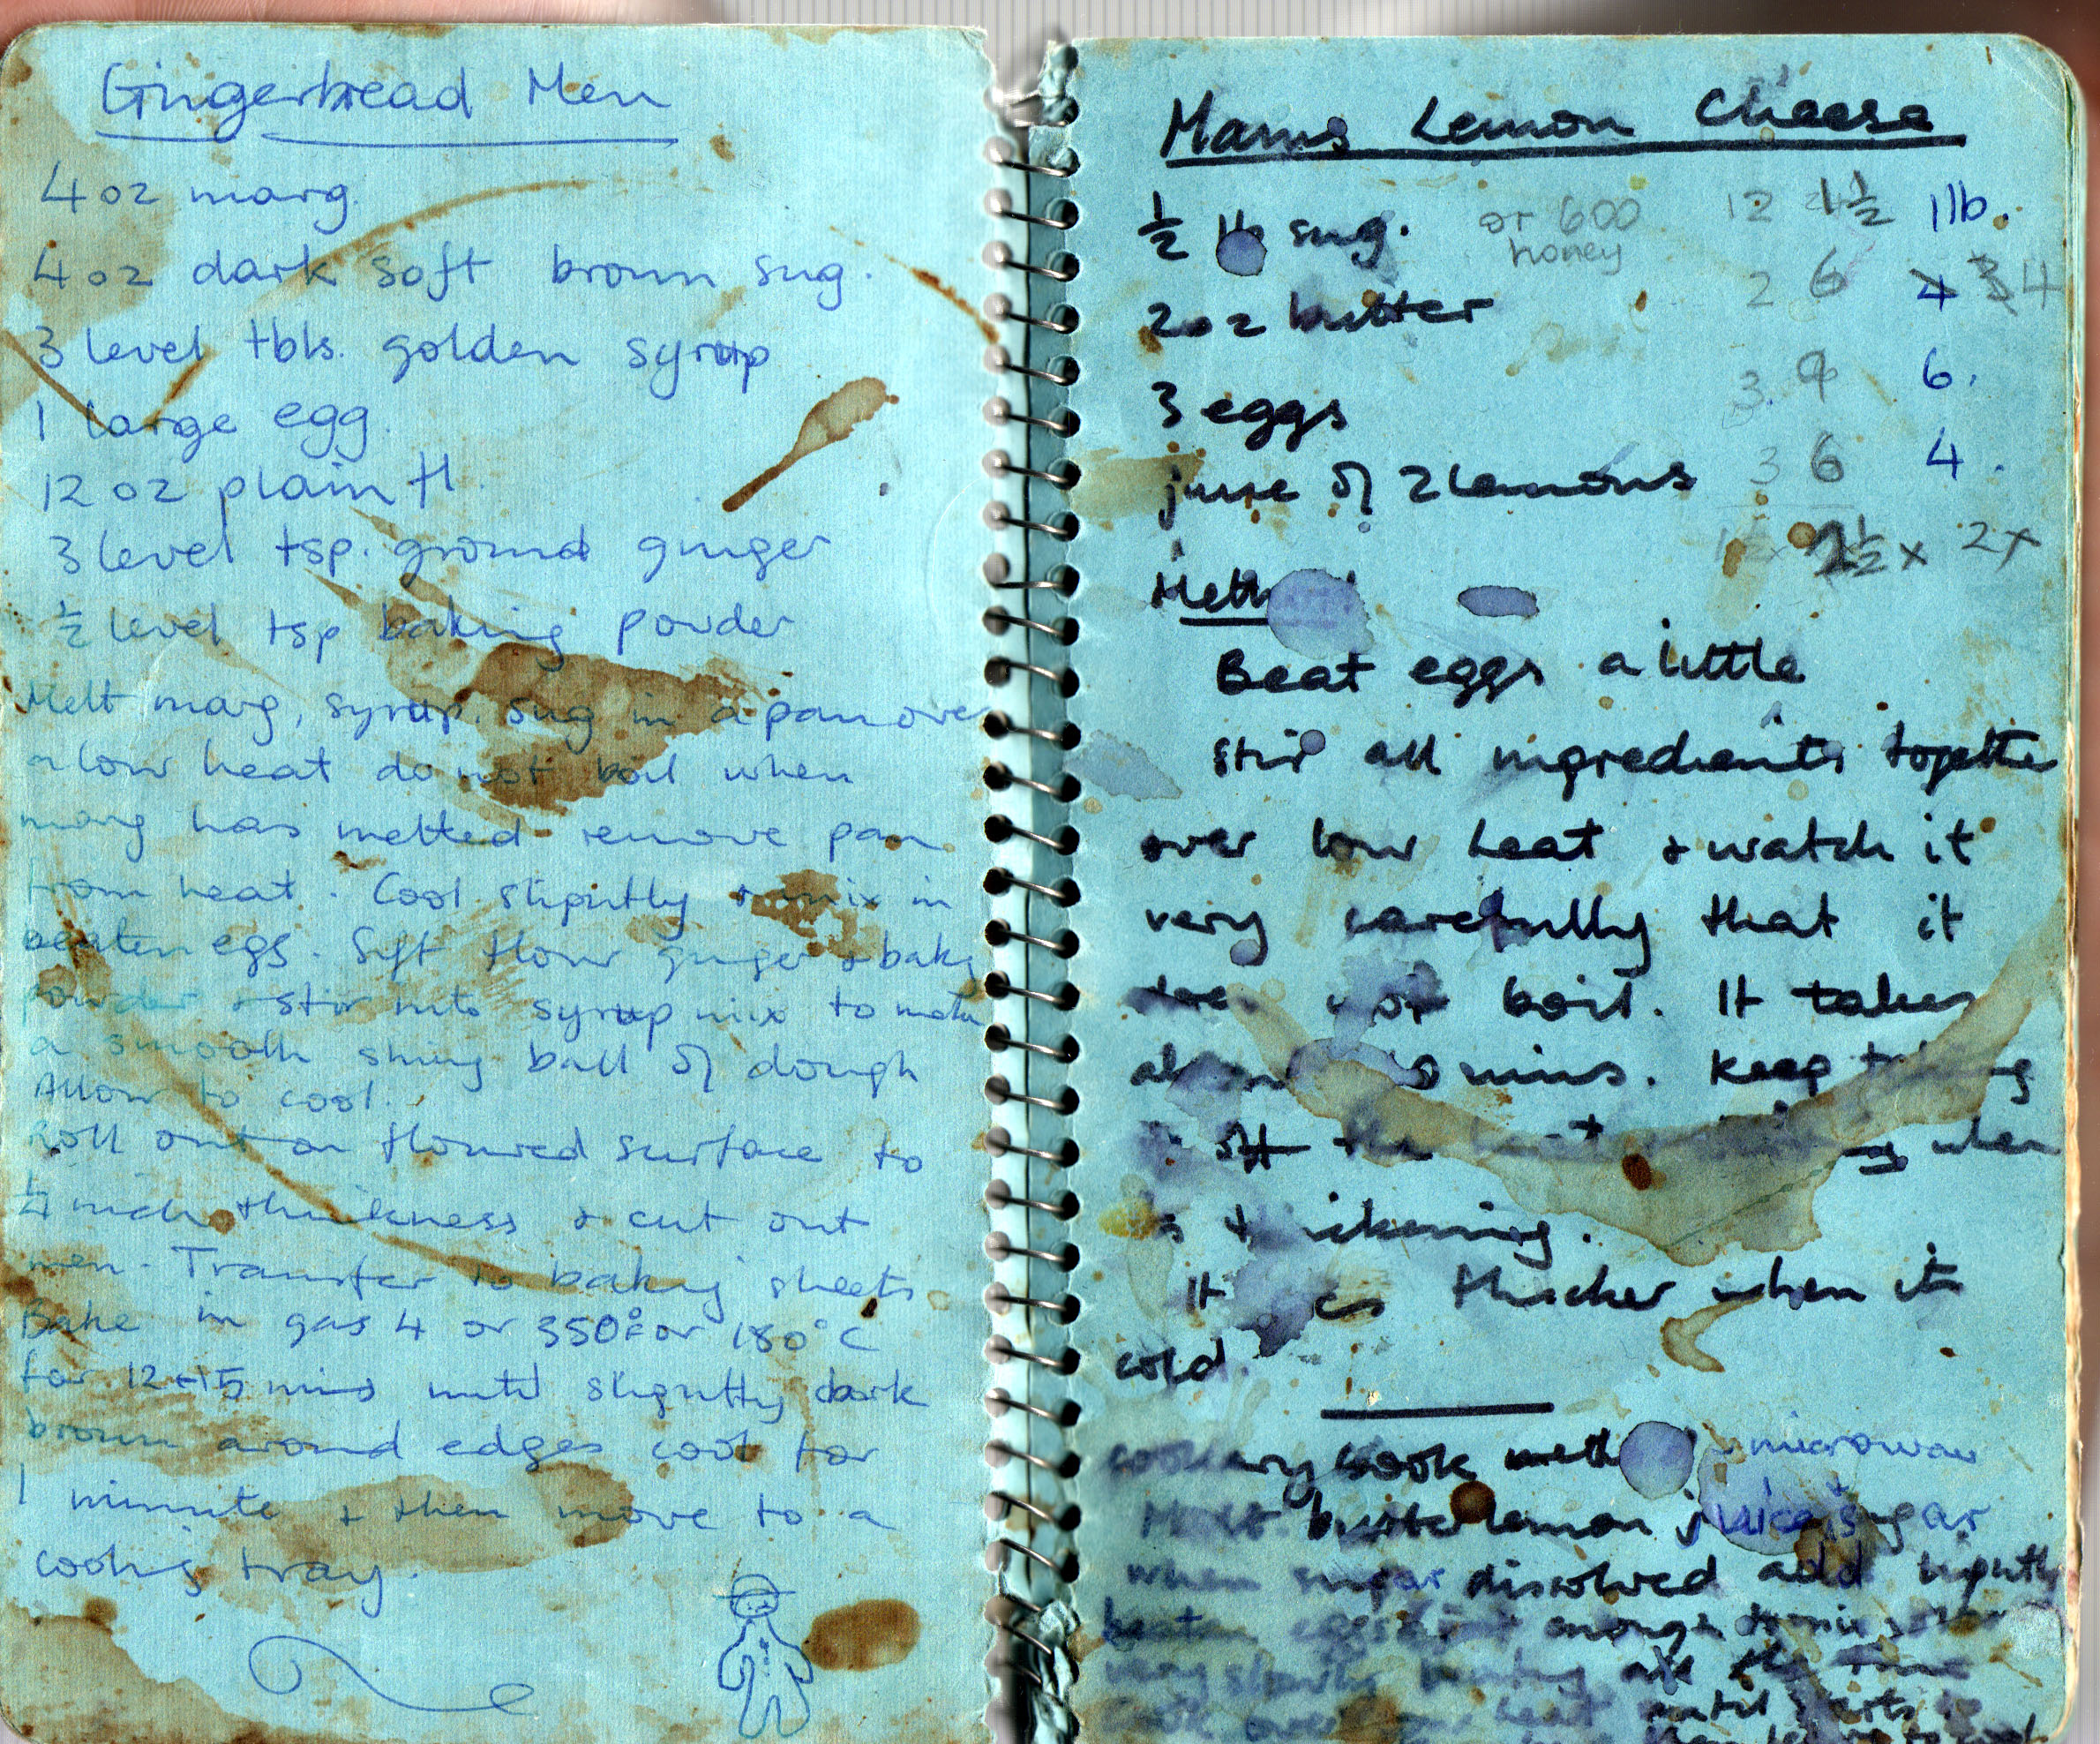 Gingerbread Men
4 oz marg.
4 oz dark soft brown sug.
3 level tbls. golden syrup
1 large egg.
12 oz plain fl.
3 level tsp. ground ginger
½ level tsp baking powder
Melt marg, syrup. sug in a pan over
a low heat do not boil when
marg has melted remove pan
from heat. Cool slightly + mix in
beaten egg. Sift flour ginger + bakg
powder + stir into syrup mix to make
a smooth shiny ball of dough
Allow to cool.
Roll out on floured surface to
¼ inch thickness + cut out
men. Transfer to bakg sheets
Bake in gas 4 or 350°F or 180°C
for 12-15 mins until slightly dark
brown around edges cool for
1 minute + then move to a
coolig tray.
Mams Lemon Cheese
½ lb sug. or 600 12 1½ 1lb.
honey
2oz butter 2 6 4 3 4
3 eggs 3. 9 6.
juice of 2 lemons 3 6 4.
1½x 2½x 2x
Meth
Beat eggs a little
stir all ingredients together
over low heat + watch it
very carefully that it
does not boil. It takes
about mins. Keep taking
off the when
is thickening.
It is thicker when it
cold.
cookery book meth microwave
Melt butter lemon juice + sugar
when sugar dissolved add lightly
beaten eggs enough to mix
very slowly beating all the time
Cook over low heat until starts to